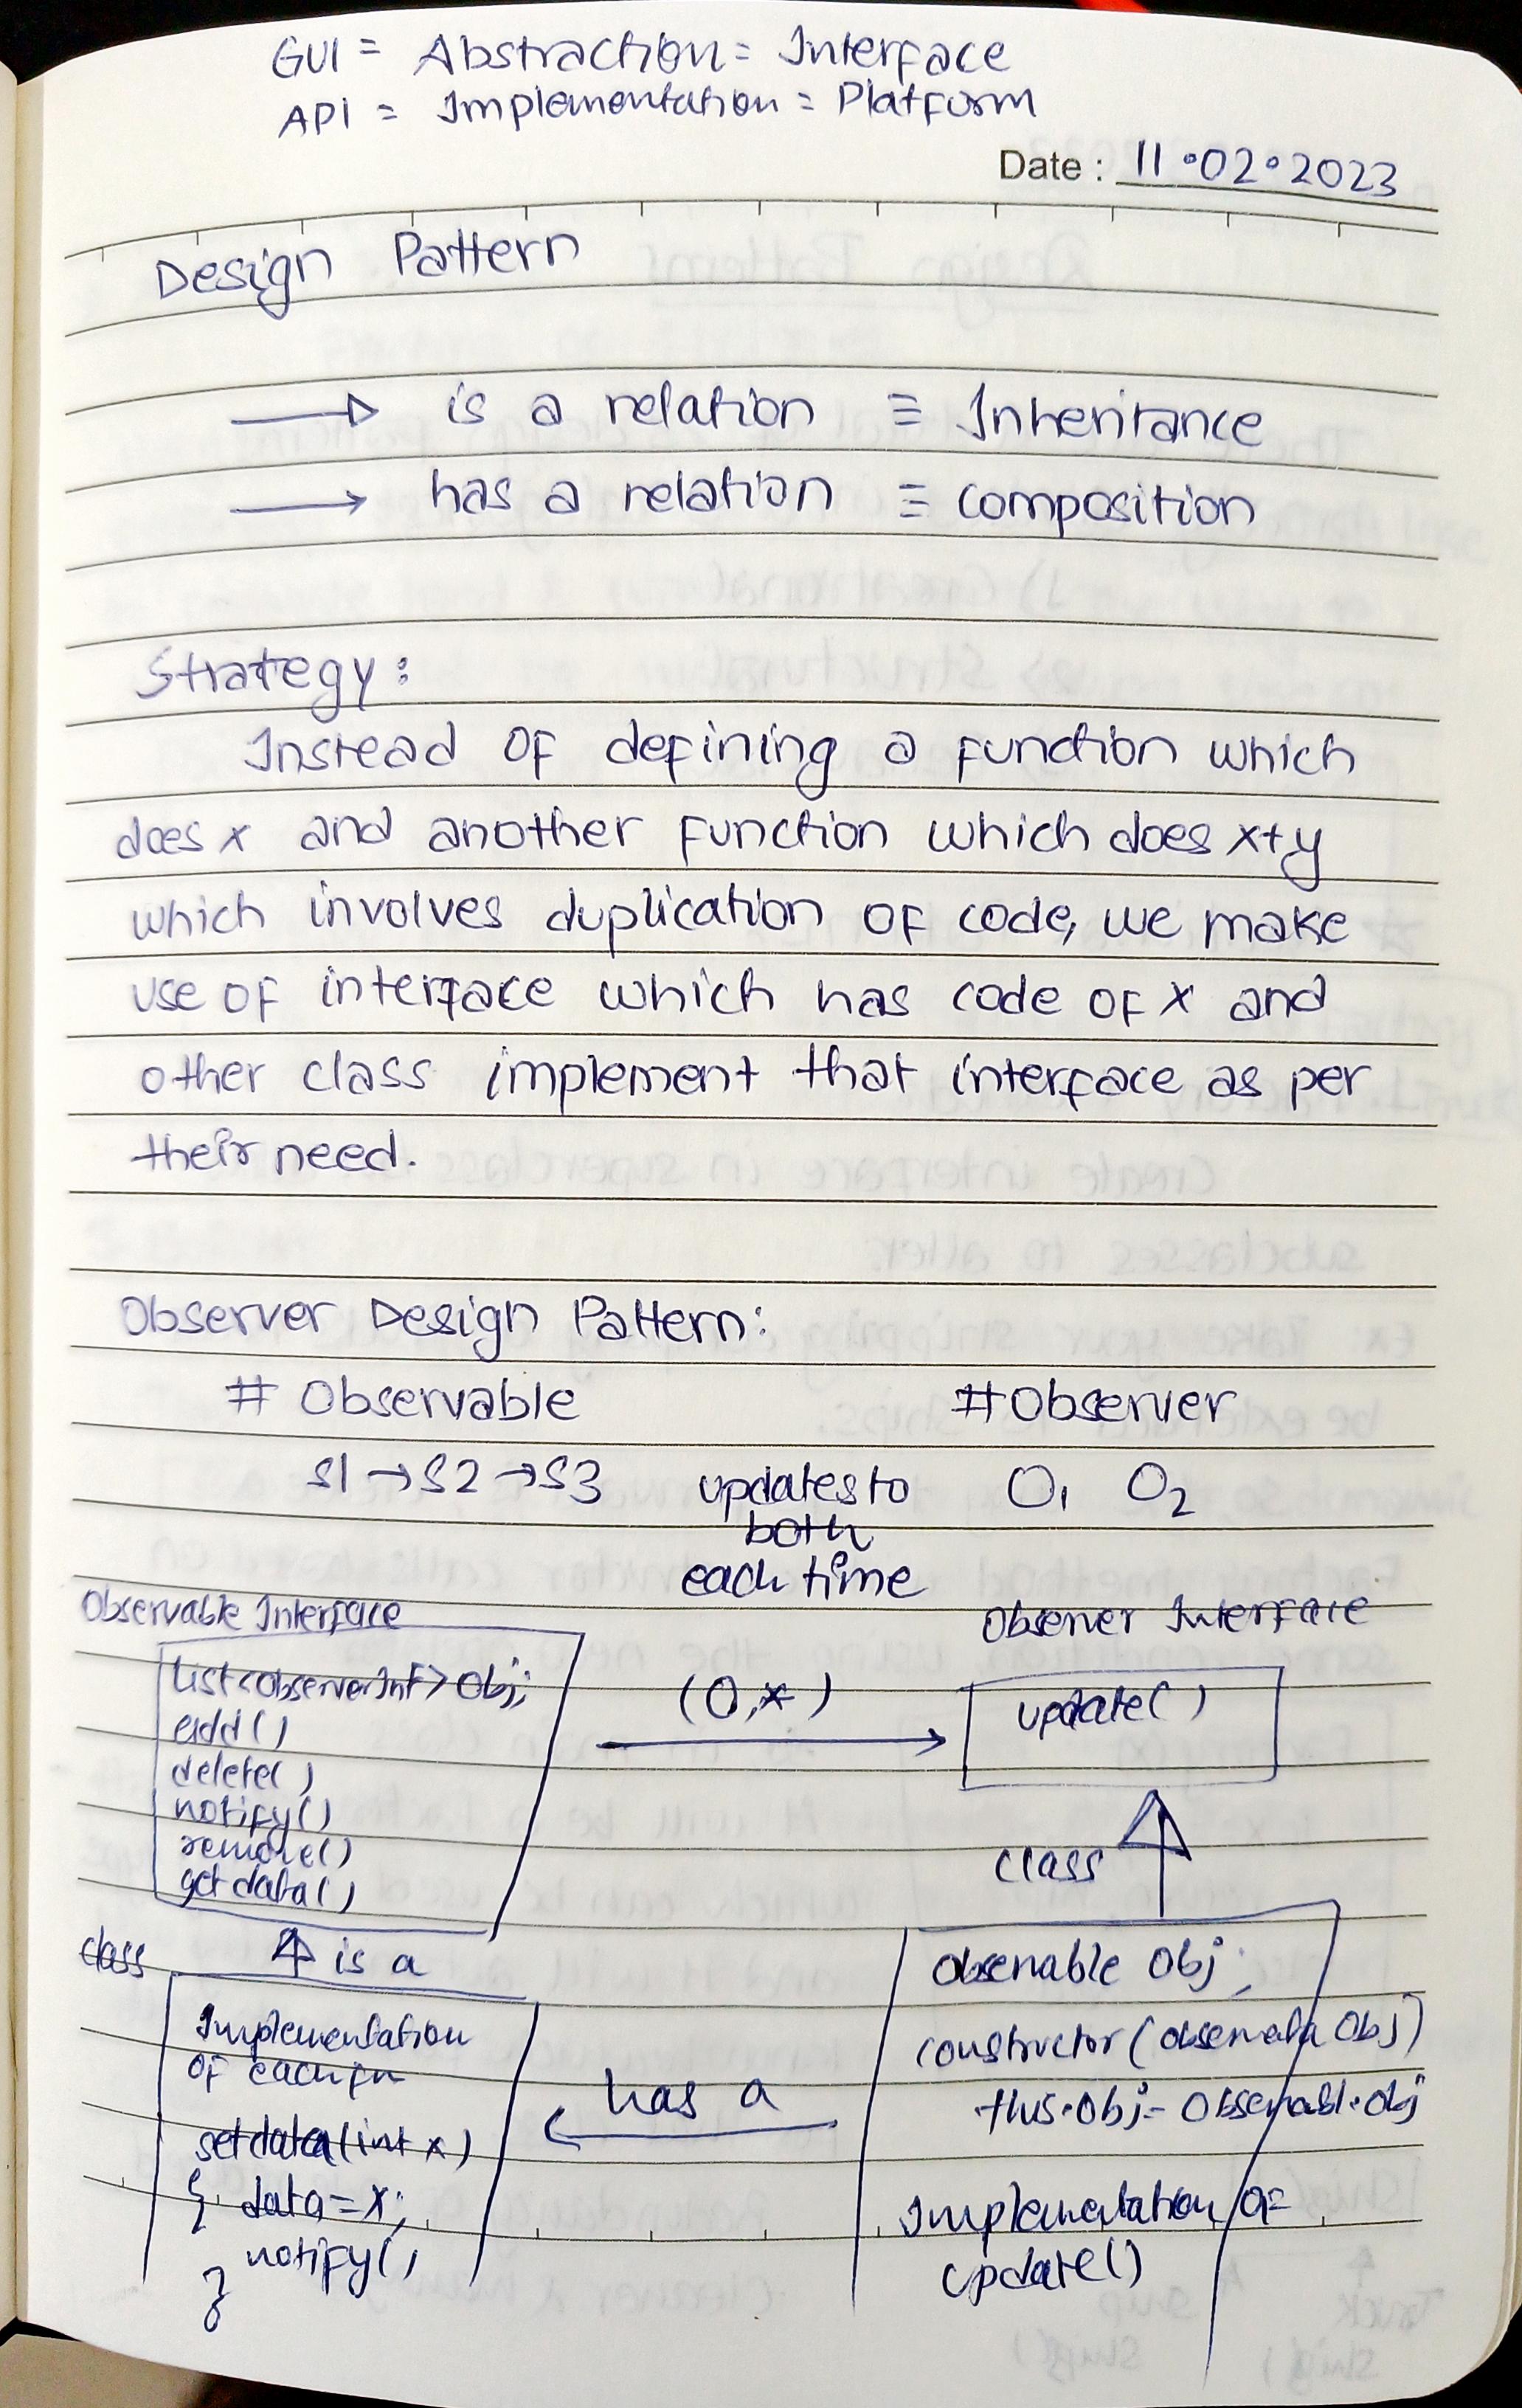 GUI = Abstraction = Interface
API = Implementation = Platform
Date : 11.02.2023
Design Pattern
→ is a relation ≡ Inheritance
→ has a relation ≡ composition
Strategy:
Instead of defining a function which
does x and another function which does x+y
which involves duplication of code, we make
use of interface which has code of x and
other class implement that interface as per
their need.
Observer Design Pattern:
# Observable #Observer
S1 → S2 → S3 updates to O1 O2
both
each time
Observable Interface Observer Interface
List<ObserverInt> Obj;
add()
delete()
notify()
remove()
getdata()
(0,*)
update()
class
class is a
Implementation
of each fn
setdata(int x)
{ data=x;
notify();
}
has a
Observable Obj;
constructor(
this.obj=
Implementation of
update()